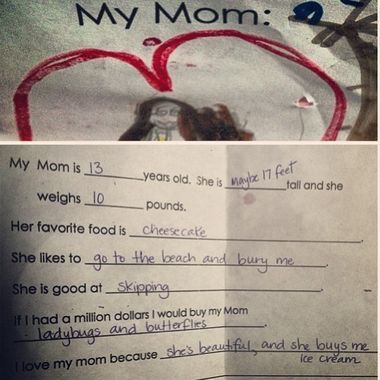 My Mom:
My Mom is 13 years old. She is maybe 17 feet tall and she
weighs 10 pounds.
Her favorite food is cheesecake.
She likes to go to the beach and bury me.
She is good at skipping.
If I had a million dollars I would buy my Mom
ladybugs and butterflies.
I love my mom because she's beautiful, and she buys me
ice cream